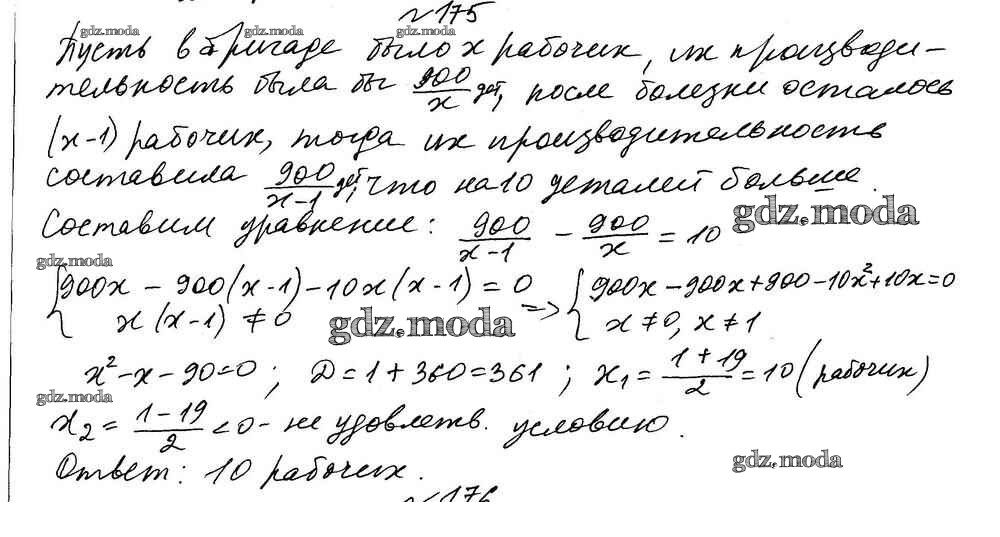 №175
gdz.moda gdz.moda gdz.moda gdz.moda
Пусть в бригаде было x рабочих, их производи-
тельность была бы 900/x дет, после болезни осталось
(x-1) рабочих, тогда их производительность
составила 900/(x-1) дет, что на 10 деталей больше.
gdz.moda
Составим уравнение: 900/(x-1) - 900/x = 10
gdz.moda
{900x - 900(x-1) - 10x(x-1) = 0 => {900x - 900x + 900 - 10x² + 10x = 0
x(x-1) ≠ 0 x ≠ 0, x ≠ 1
gdz.moda
x² - x - 90 = 0; D = 1 + 360 = 361; x₁ = (1+19)/2 = 10 (рабочих)
gdz.moda
x₂ = (1-19)/2 < 0 - не удовлетв. условию.
gdz.moda
Ответ: 10 рабочих.
№176